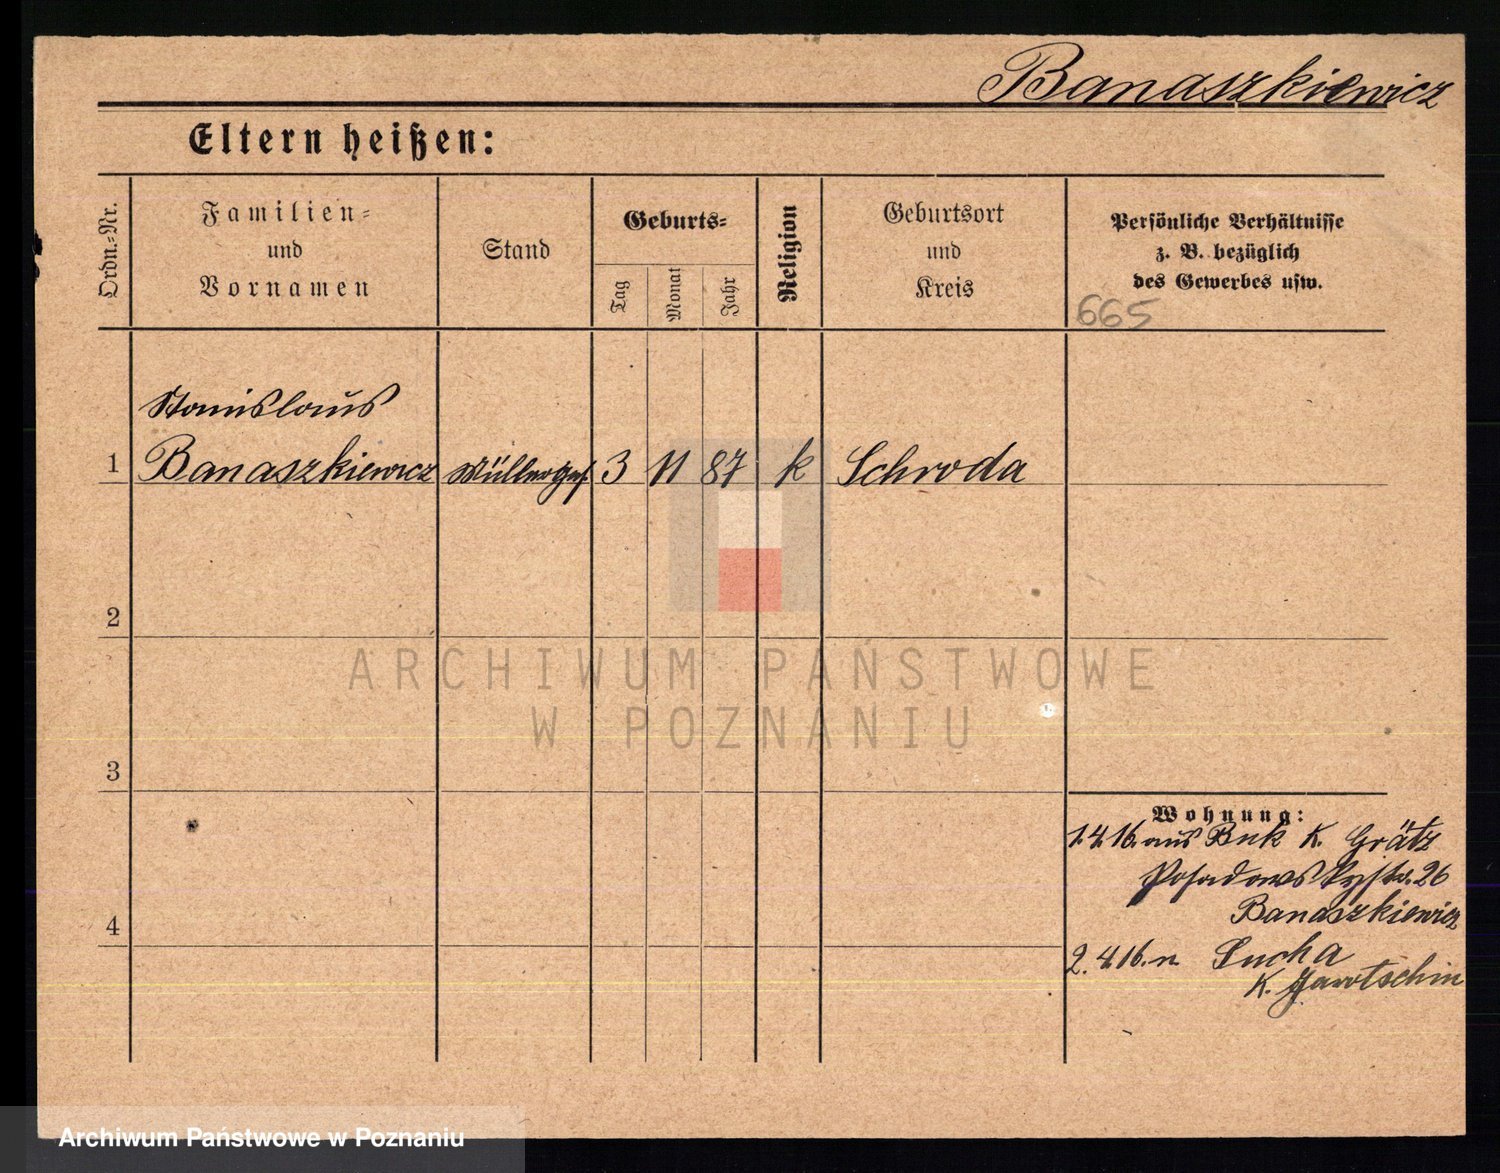 Banaszkiewicz
Eltern heißen:
Ordn.=Nr.
Familien=
und
Vornamen
Stand
Geburts=
Tag
Monat
Jahr
Religion
Geburtsort
und
Kreis
Persönliche Verhältnisse
z. B. bezüglich
des Gewerbes usw.
665
Stanislaus
1 Banaszkiewicz Müllerges. 3 11 87 k Schroda
2
ARCHIWUM PAŃSTWOWE
W POZNANIU
3
Wohnung:
1.4.16. aus Buk K. Grätz
Posadowskystr. 26
Banaszkiewicz
4
2.4.16. n. Sucha
K. Jarotschin
Archiwum Państwowe w Poznaniu